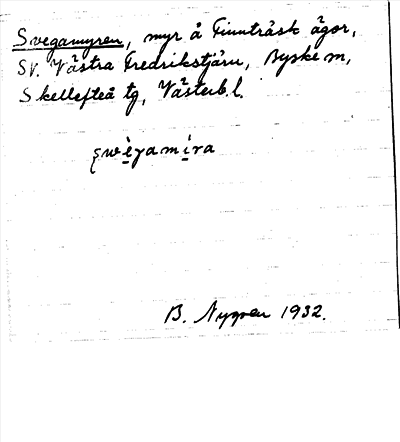 Svegamyren, myr å Finnträsk ägor,
SV. Västra Fredrikstjärn, Byske m,
Skellefteå tg, Västerb. l.
B. Nygren 1932.